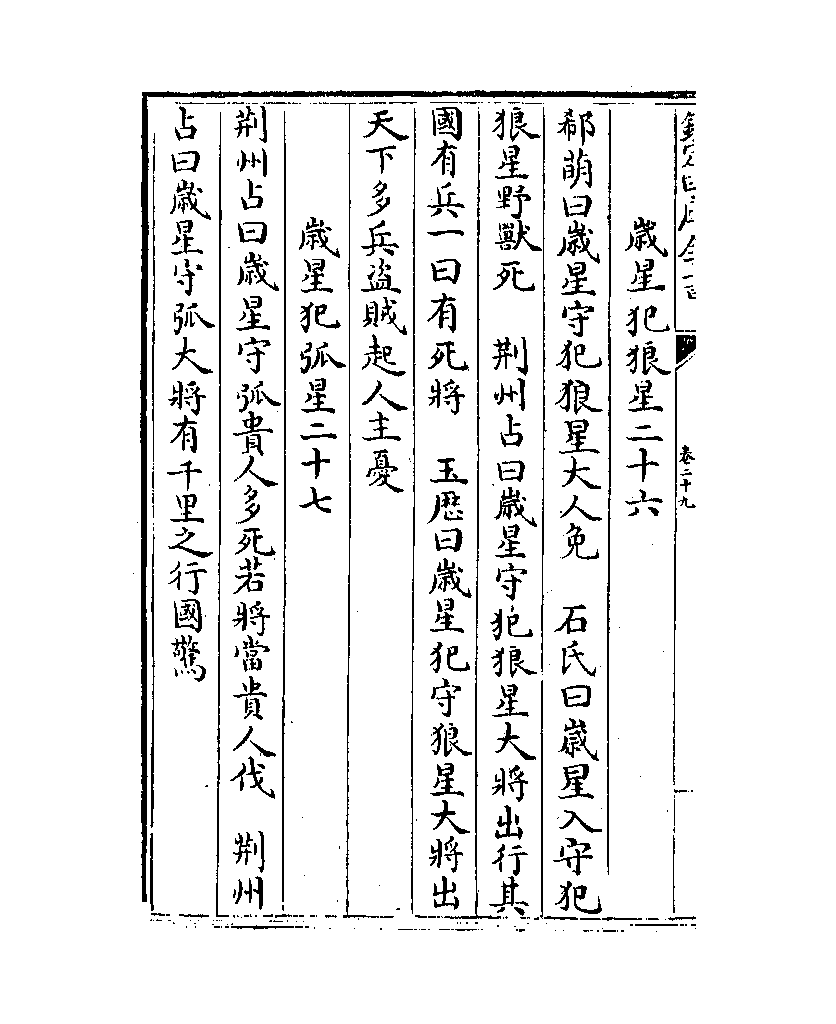 欽定四庫全書
卷二十九
歳星犯狼星二十六
郗萌曰歳星守犯狼星大人免　石氏曰歳星入守犯
狼星野獸死　荆州占曰歳星守犯狼星大將出行其
國有兵一曰有死將　玉厯曰歳星犯守狼星大將出
天下多兵盗賊起人主憂
歳星犯弧星二十七
荆州占曰歳星守弧貴人多死若將當貴人伐　荆州
占曰歳星守弧大將有千里之行國驚